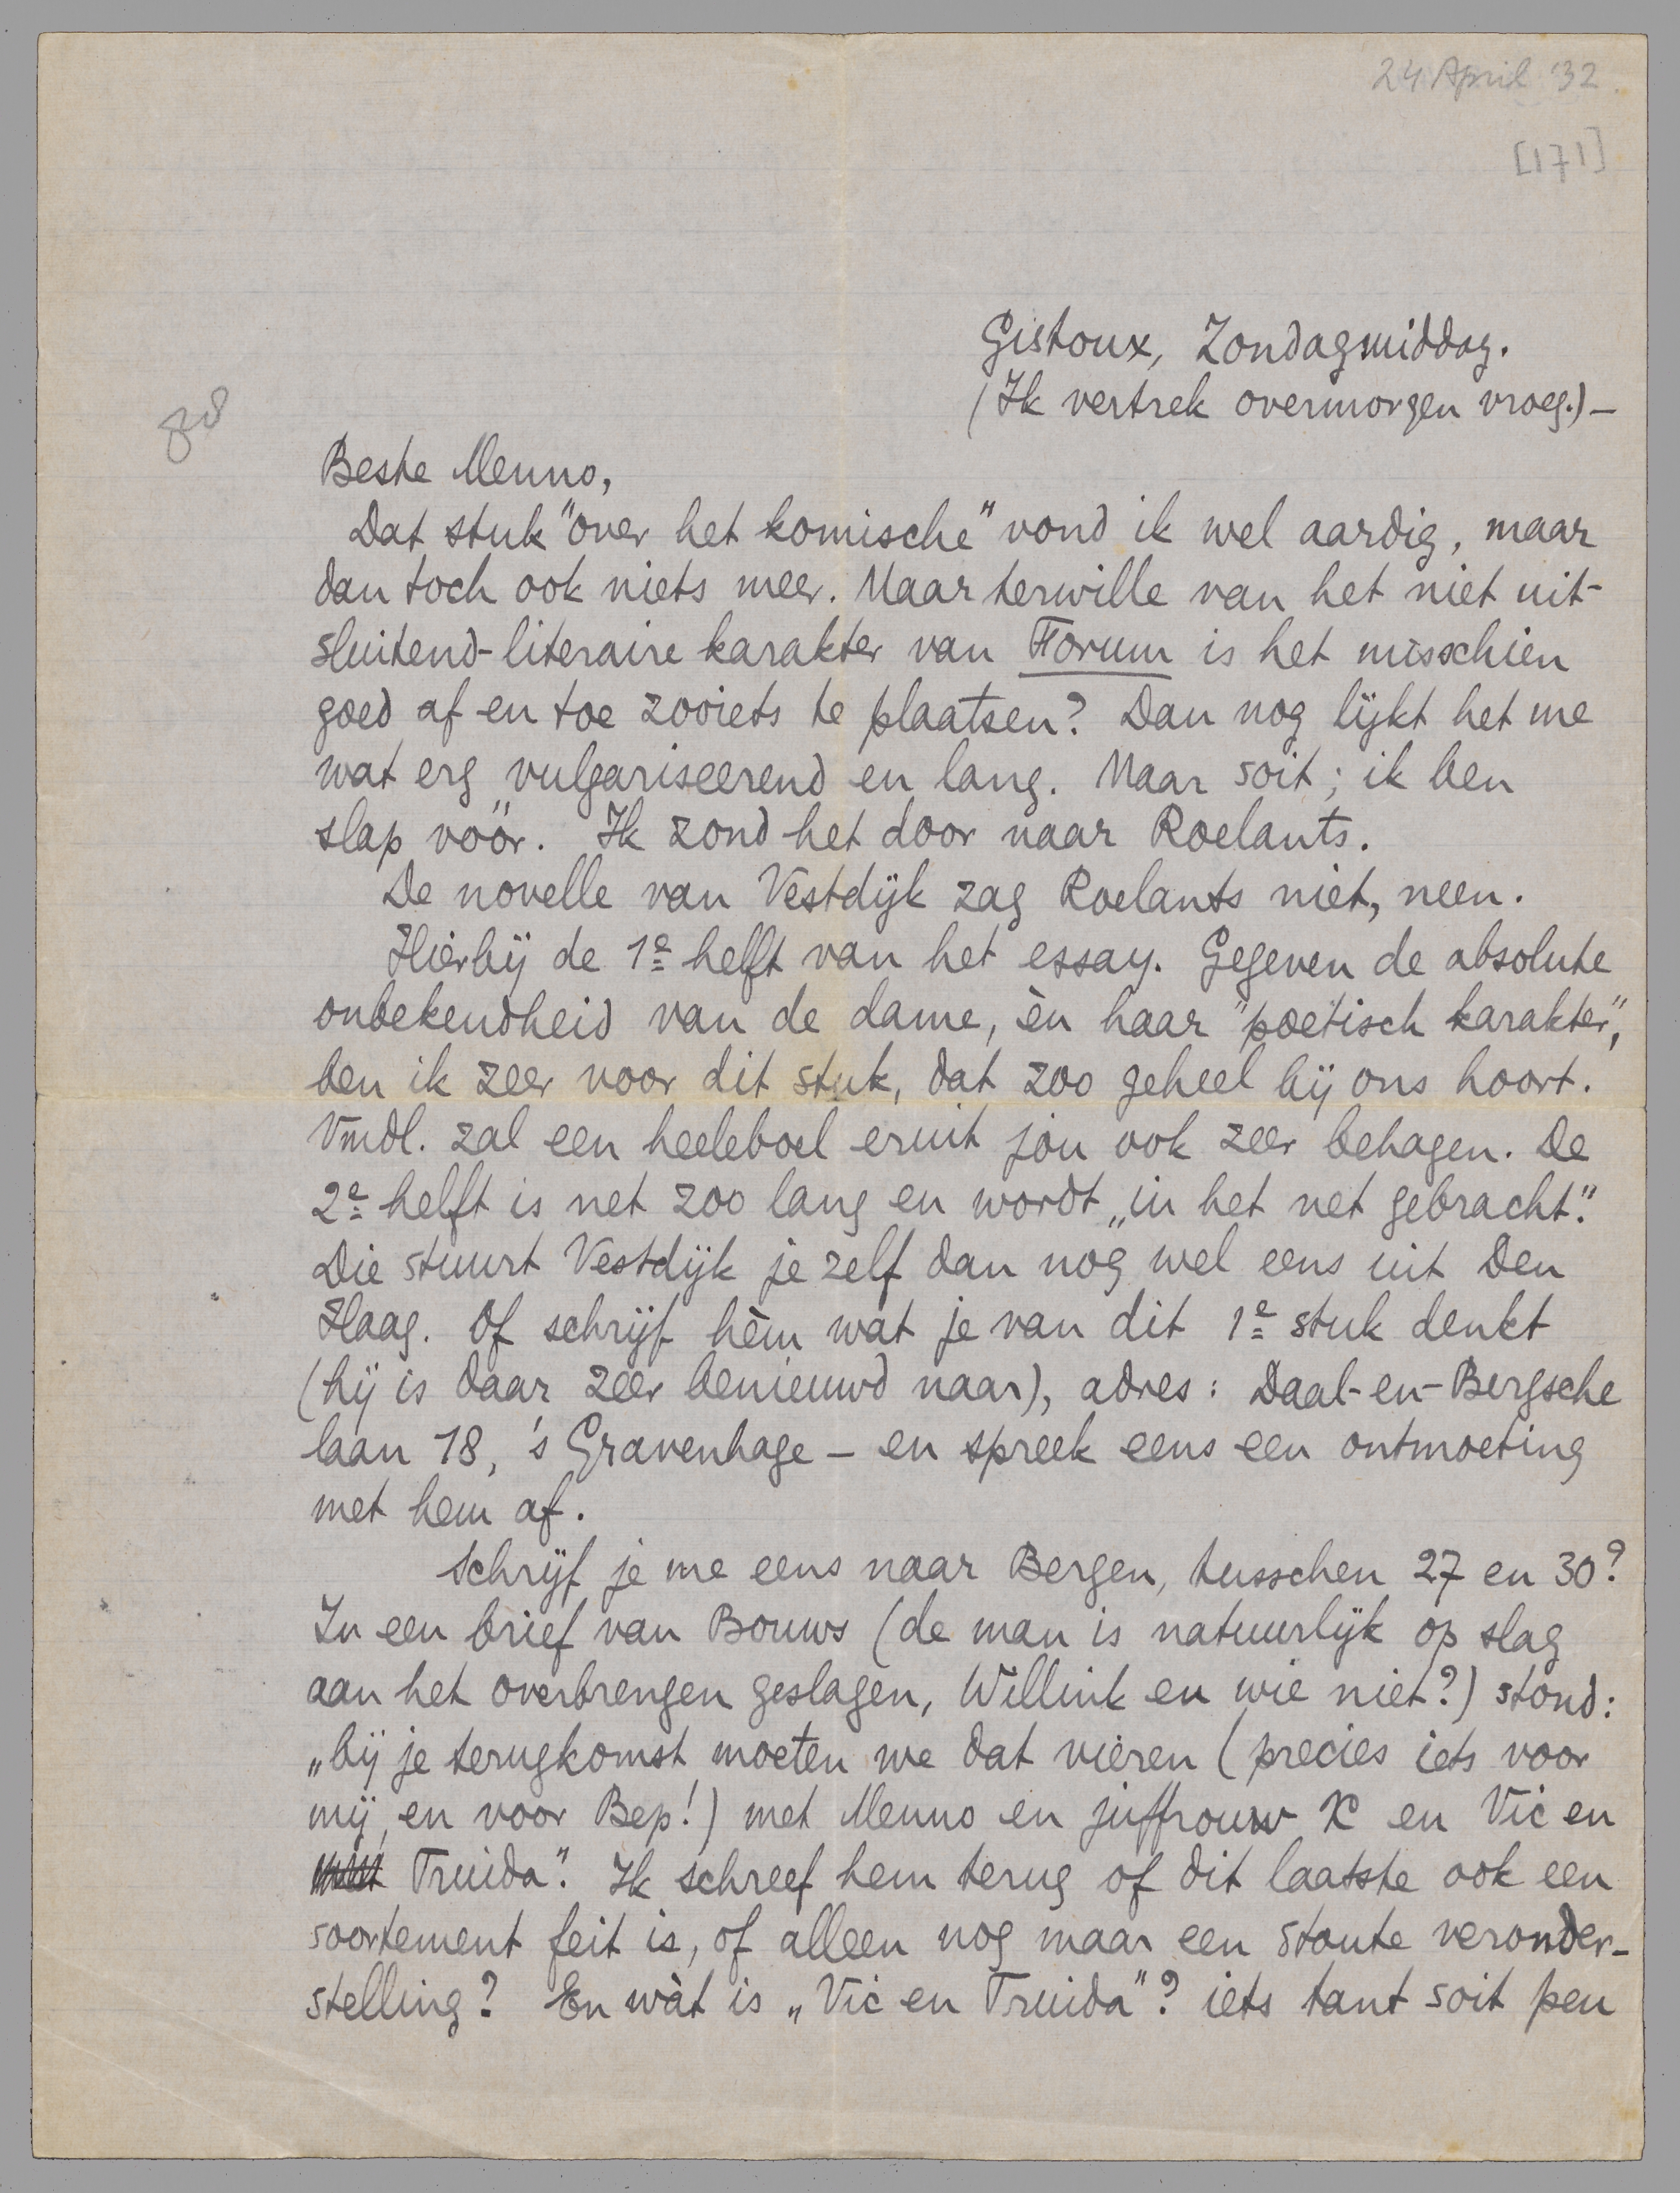 24 April '32.
[171]
Gistoux, Zondagmiddag.
(Ik vertrek overmorgen vroeg.) –
Beste Menno,
Dat stuk "over het komische" vond ik wel aardig, maar
dan toch ook niets meer. Maar terwille van het niet uit-
sluitend-literaire karakter van Forum is het misschien
goed af en toe zooiets te plaatsen? Dan nog lijkt het me
wat erg vulgariseerend en lang. Maar soit; ik ben
slap vóór. Ik zond het door naar Roelants.
De novelle van Vestdijk zag Roelants niet, neen.
Hierbij de 1e helft van het essay. Gegeven de absolute
onbekendheid van de dame, èn haar "poëtisch karakter",
ben ik zeer voor dit stuk, dat zoo geheel bij ons hoort.
Vmdl. zal een heeleboel eruit jou ook zeer behagen. De
2e helft is net zoo lang en wordt „in het net gebracht".
Die stuurt Vestdijk je zelf dan nog wel eens uit Den
Haag. Of schrijf hèm wat je van dit 1e stuk denkt
(hij is daar zeer benieuwd naar), adres: Daal-en-Bergsche
laan 18, 's Gravenhage – en spreek eens een ontmoeting
met hem af.
Schrijf je me eens naar Bergen, tusschen 27 en 30?
In een brief van Bouws (de man is natuurlijk op slag
aan het overbrengen geslagen, Willink en wie niet?) stond:
„bij je terugkomst moeten we dat vieren (precies iets voor
mij, en voor Bep!) met Menno en juffrouw X en Vic en
Truida". Ik schreef hem terug of dit laatste ook een
soortement feit is, of alleen nog maar een stoute veronder-
stelling? En wàt is „Vic en Truida"? iets tant soit peu